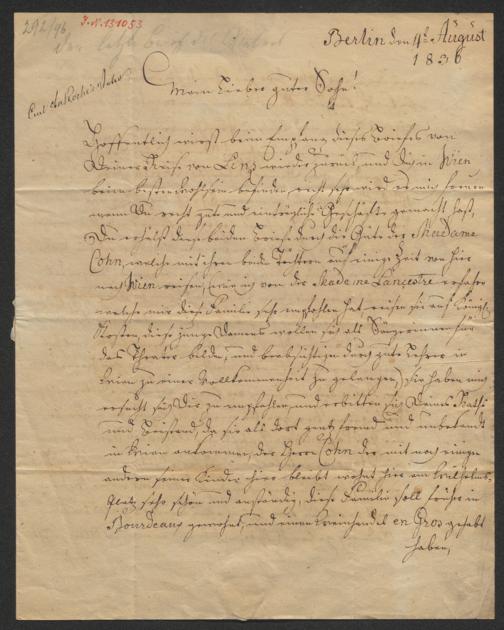 292/96
I.N. 131053
der letzte Brief des Vaters
Berlin den 4t August
1836
Mein Lieber guter Sohn!
Hoffentlich wirst beim Empfang dieses Briefes von
Deiner Reise von Linz wieder zurück, und Dich in Wien
beim besten Wohlsein befinden, recht sehr wird es mich freuen
wenn Du recht gute und einträgliche Geschäfte gemacht hast,
Du erhälst diese beiden Briefe durch die Güte der Madame
Cohn, welche mit ihren beiden Töchtern auf einige Zeit von hier
nach Wien reisen, wie ich von der Madame erfahre
welche mir diese Familie sehr empfohlen hat reisen sie auf König
Kosten, diese junge Damens wollen sich als Sängerinnen für
das Theater bilden, und beabsichtigen durch gute Lehrer in
Wien zu einer Vollkommenheit zu gelangen, sie haben mich
ersucht sie Dir zu empfehlen, und erbitten sich Deinen Rath
und Beistand, da sie als dort ganz fremd und unbekandt
in Wien ankommen, der Herr Cohn der mit noch einigen
andern seiner Kinder hier bleibt wohnt hier am Wilhelms-
platz sehr schön und anständig, diese Familie soll früher in
Bourdeaux gewohnt, und einen Weinhandel en Gros gehabt
haben,